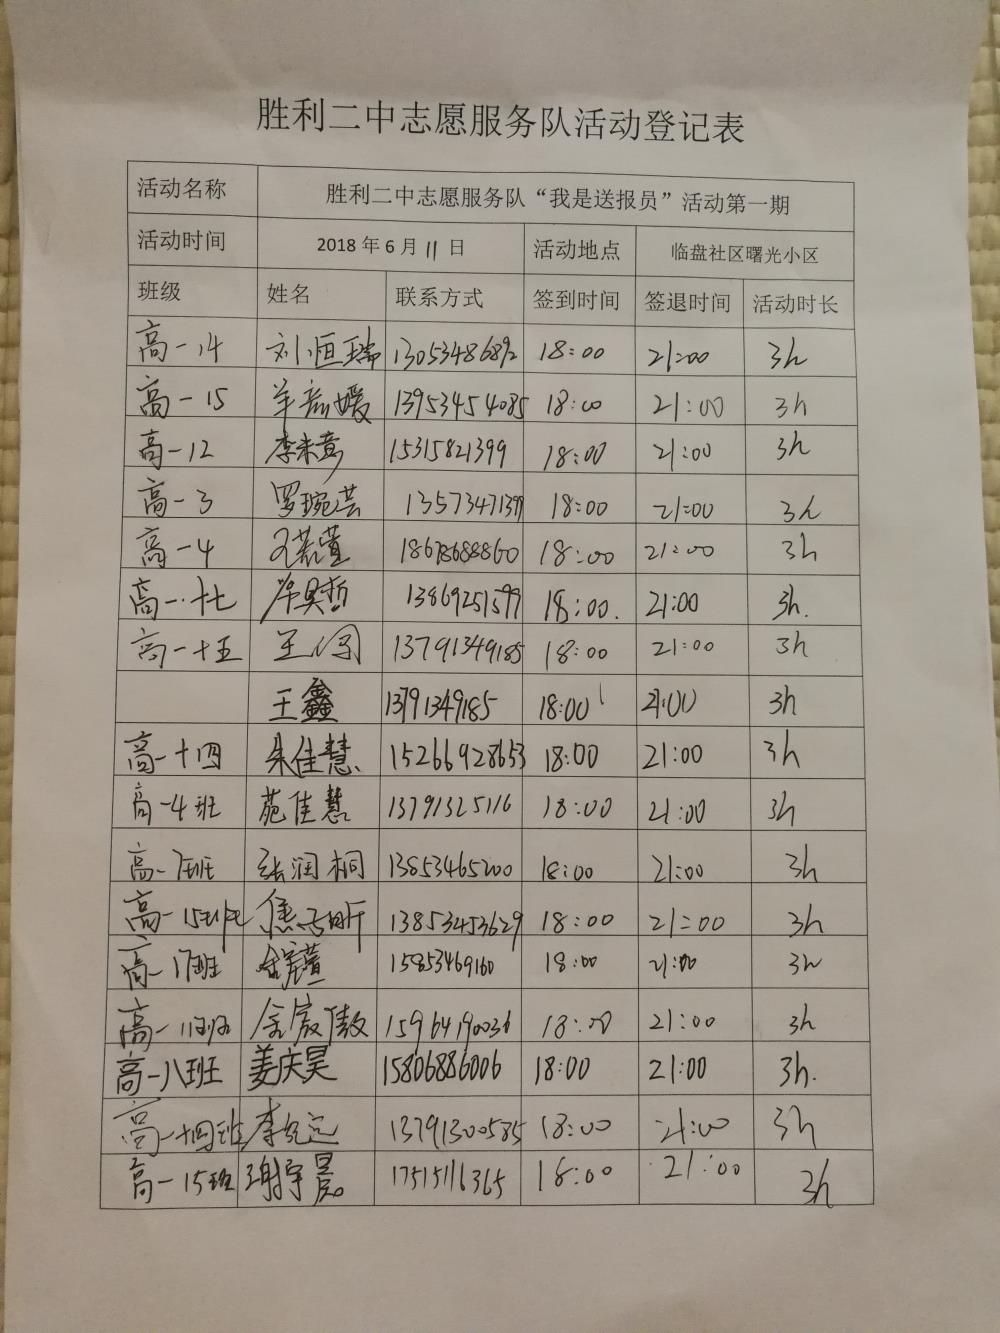 胜利二中志愿服务队活动登记表
活动名称 胜利二中志愿服务队“我是送报员”活动第一期
活动时间 2018年6月11日 活动地点 临盘社区曙光小区
班级 姓名 联系方式 签到时间 签退时间 活动时长
高一14 刘恒瑞 13053486892 18:00 21:00 3h
高一15 13953454085 18:00 21:00 3h
高一12 李未意 15315821399 18:00 21:00 3h
高一3 罗琬芸 13573471399 18:00 21:00 3h
高一4 18678688860 18:00 21:00 3h
高一·十七 昊哲 13869251599 18:00. 21:00 3h.
高一十五 王 13791349185 18:00 21:00 3h
王鑫 13791349185 18:00 21:00 3h
高一十四 朱佳慧 15266928653 18:00 21:00 3h
高一4班 苑佳慧 13791325116 18:00 21:00 3h
高一7班 张润桐 13853465200 18:00 21:00 3h
高一15班 焦 昕 13853453629 18:00 21:00 3h
高一17班 15853469160 18:00 21:00 3h
高一11班 15964190036 18:00 21:00 3h
高一八班 姜庆昊 15806886006 18:00 21:00 3h.
高一十四班 李 13791300585 18:00 21:00 3h
高一15班 谢宇晨 17515116365 18:00 21:00 3h